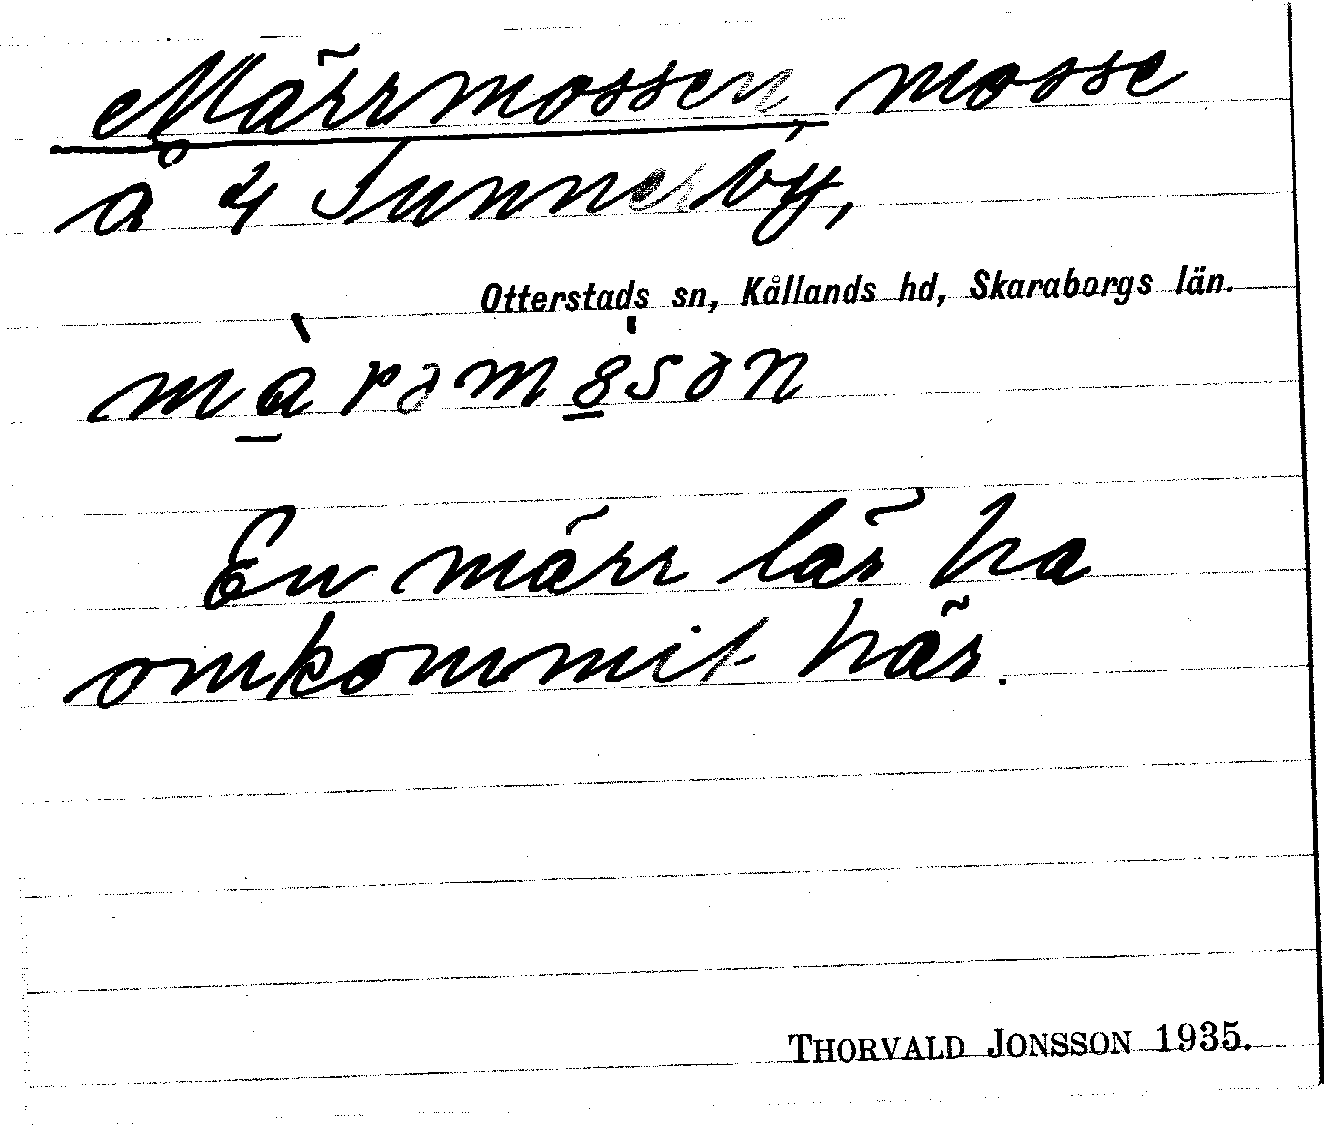 Märrmossen, mosse
å 4 Sunnerby,
Otterstads sn, Kållands hd, Skaraborgs län.
En märr lär ha
omkommit här.
THORVALD JONSSON 1935.